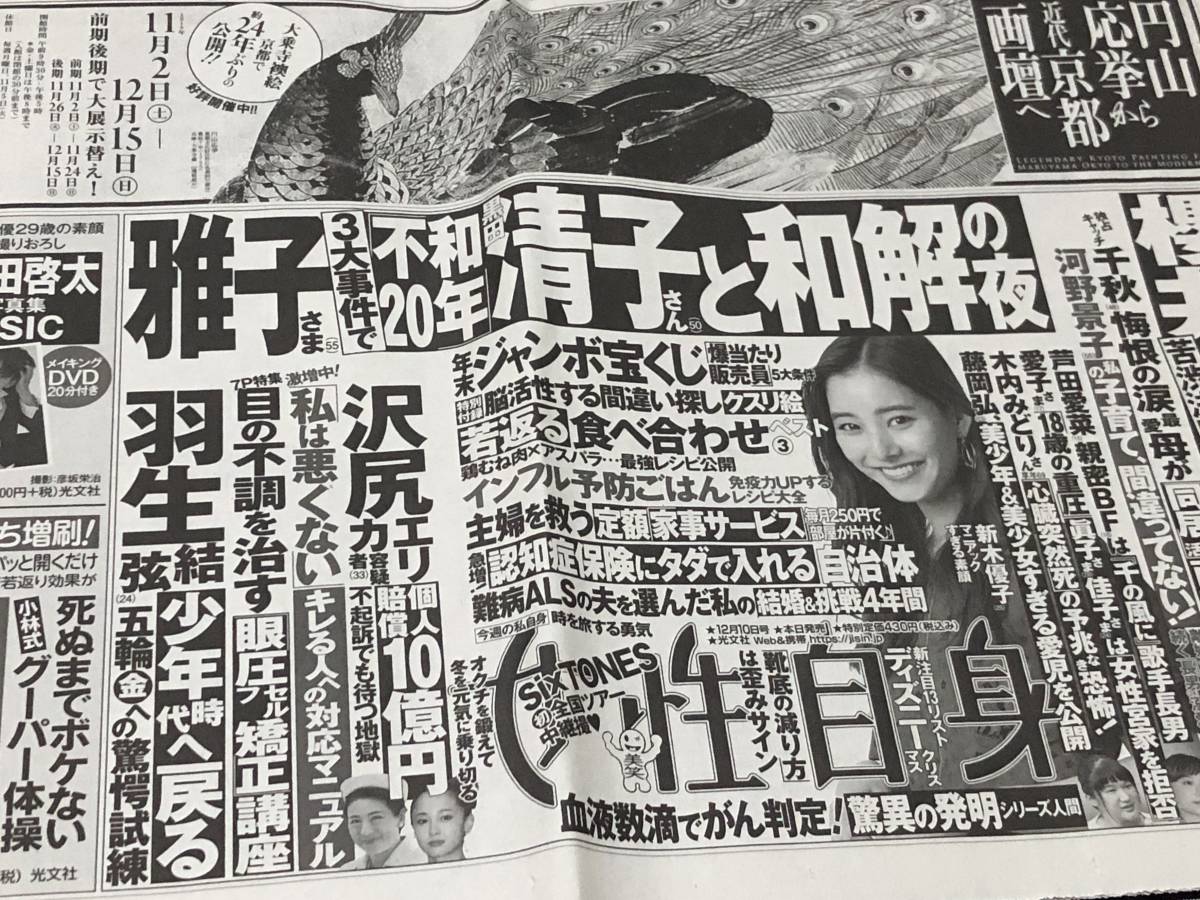 円山
応挙から
近代京都
画壇へ
大乗寺襖絵
京都で
約24年ぶりの
公開!!
好評開催中!!
11月2日(土)―
12月15日(日)
前期後期で大展示替え!
前期11月2日(土)―11月24日(日)
後期11月26日(火)―12月15日(日)
清子さん(50)と和解の夜
雅子さま(55)
3大事件で
不和
20年
独占キャッチ
千秋 悔恨の涙
最愛母が
河野景子
の私
子育て、間違ってない!
芦田愛菜 親密BFは「千の風に」歌手長男
愛子さま18歳の重圧
眞子さま 佳子さまは女性宮家を拒否
木内みどりさん
「心臓突然死」の予兆なき恐怖!
藤岡弘、
美少年&美少女すぎる愛児を公開
新木優子
マニアックすぎる素顔
年末ジャンボ宝くじ
爆当たり
販売員
5大条件
特別付録
脳活性する間違い探し
クスリ絵
若返る食べ合わせベスト③
鶏むね肉×アスパラ…最強レシピ公開
インフル予防ごはん
免疫力UPする
レシピ大全
主婦を救う定額家事サービス
毎月250円で
部屋が片付く♪
急増!
認知症保険にタダで入れる自治体
難病ALSの夫を選んだ私の結婚&挑戦4年間
今週の私自身
時を旅する勇気
★12月10日号★本日発売★特別定価430円(税込み)
★光文社 Web&携帯 https://jisin.jp
女性自身
SixTONES
初全国ツアー
中継撮♥
美笑
靴底の減り方
は歪みサイン
新注目13リスト
ディズニー
クリスマス
血液数滴でがん判定!
驚異の発明
シリーズ人間
沢尻エリカ容疑者(33)
個人賠償10億円
不起訴でも待つ地獄
オクチを鍛えて
冬を元気に乗り切る
激増中!
「私は悪くない」
キレる人への対応マニュアル
7P特集
目の不調を治す
眼圧セルフ矯正講座
羽生結弦(24)
少年時代へ戻る
五輪金への驚愕試練
優29歳の素顔
撮りおろし
田啓太
写真集
SIC
メイキング
DVD
20分付き
撮影:彦坂栄治
00円+税)光文社
ち増刷!
パッと開くだけ
若返り効果が
死ぬまでボケない
小林式
グーパー体操
税)光文社